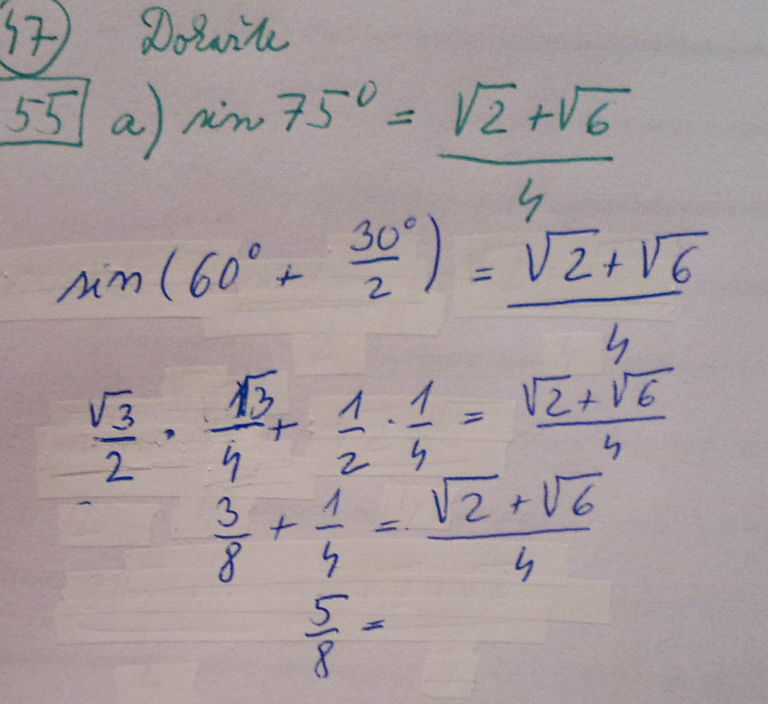 47 Dokažte
55 a) sin 75° = (√2 + √6)/4
sin(60° + 30°/2) = (√2 + √6)/4
√3/2 · √3/4 + 1/2 · 1/4 = (√2 + √6)/4
3/8 + 1/4 = (√2 + √6)/4
5/8 =